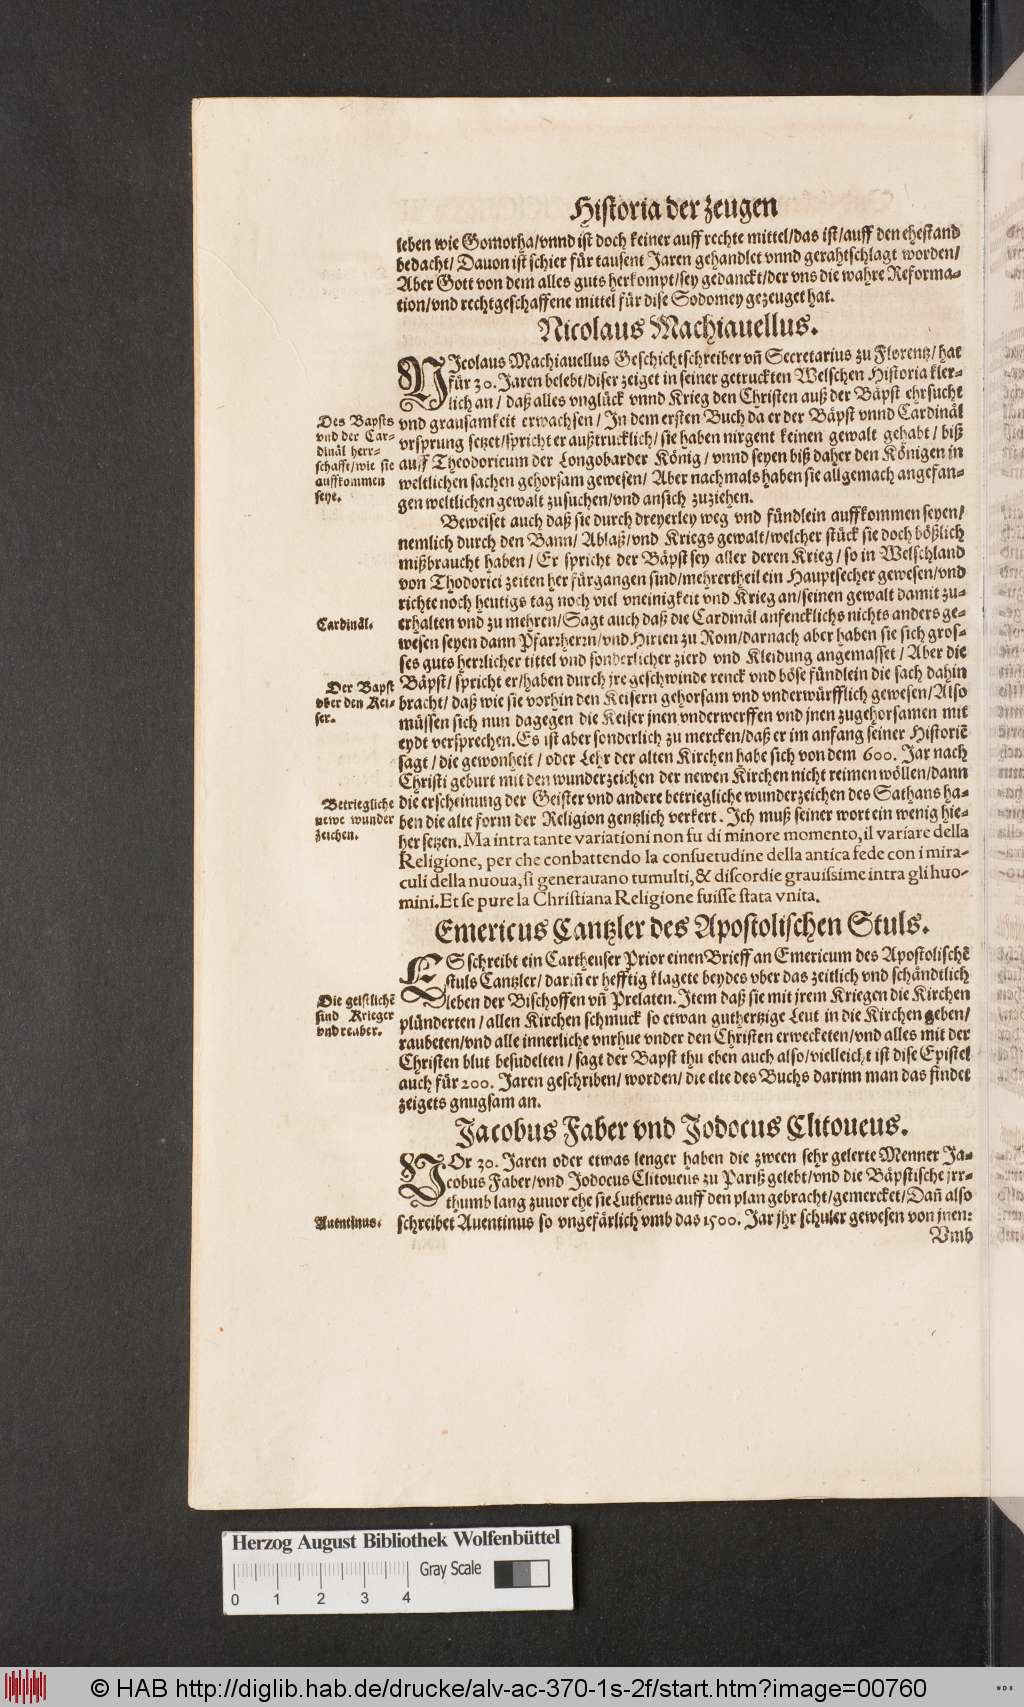 Historia der zeugen
leben wie Gomorha/vnnd ist doch keiner auff rechte mittel/das ist/auff den ehestand
bedacht/ Dauon ist schier für tausent Jaren gehandlet vnnd gerahtschlagt worden/
Aber Gott von dem alles guts herkompt/sey gedanckt/der vns die wahre Reforma-
tion/vnd rechtgeschaffene mittel für dise Sodomey gezeuget hat.
Nicolaus Machiauellus.
NJcolaus Machiauellus Geschichtschreiber vñ Secretarius zu Florentz/hat
für 30. Jaren belebt/diser zeiget in seiner getruckten Welschen Historia kler-
lich an/ daß alles vnglück vnnd Krieg den Christen auß der Bäpst ehrsucht
Des Bapsts
vnd der Car-
dinäl herr-
schafft/wie sie
auffkommen
seye.
vnd grausamkeit erwachsen/ Jn dem ersten Buch da er der Bäpst vnnd Cardinäl
vrsprung setzet/spricht er außtrucklich/ sie haben nirgent keinen gewalt gehabt/ biß
auff Theodoricum der Longobarder König/ vnnd seyen biß daher den Königen in
weltlichen sachen gehorsam gewesen/ Aber nachmals haben sie allgemach angefan-
gen weltlichen gewalt zusuchen/vnd ansich zuziehen.
Beweiset auch daß sie durch dreyerley weg vnd fündlein auffkommen seyen/
nemlich durch den Bann/ Ablaß/vnd Kriegs gewalt/welcher stück sie doch bößlich
mißbraucht haben/ Er spricht der Bäpst sey aller deren Krieg/ so in Welschland
von Thodorici zeiten her fürgangen sind/mehrertheil ein Hauptsecher gewesen/vnd
richte noch heutigs tag noch viel vneinigkeit vnd Krieg an/seinen gewalt damit zu-
Cardinäl.
erhalten vnd zu mehren/Sagt auch daß die Cardinäl anfencklichs nichts anders ge-
wesen seyen dann Pfarrherrn/vnd Hirten zu Rom/darnach aber haben sie sich gros-
ses guts herrlicher tittel vnd sonderlicher zierd vnd Kleidung angemasset/ Aber die
Der Bapst
vber den Kei-
ser.
Bäpst/ spricht er/haben durch jre geschwinde renck vnd böse fündlein die sach dahin
bracht/ daß wie sie vorhin den Keisern gehorsam vnd vnderwürfflich gewesen/Also
müssen sich nun dagegen die Keiser jnen vnderwerffen vnd jnen zugehorsamen mit
eydt versprechen. Es ist aber sonderlich zu mercken/daß er im anfang seiner Historiẽ
sagt/die gewonheit/ oder Lehr der alten Kirchen habe sich von dem 600. Jar nach
Christi geburt mit den wunderzeichen der newen Kirchen nicht reimen wöllen/dann
Betriegliche
newe wunder
zeichen.
die erscheinung der Geister vnd andere betriegliche wunderzeichen des Sathans ha-
ben die alte form der Religion gentzlich verkert. Jch muß seiner wort ein wenig hie-
her setzen. Ma intra tante variationi non fu di minore momento, il variare della
Religione, per che conbattendo la consuetudine della antica fede con i mira-
culi della nuoua, si generauano tumulti, & discordie grauissime intra gli huo-
mini. Et se pure la Christiana Religione fuisse stata vnita.
Emericus Cantzler des Apostolischen Stuls.
ES schreibt ein Cartheuser Prior einen Brieff an Emericum des Apostolischẽ
stuls Cantzler/ dariñ er hefftig klagete beydes vber das zeitlich vnd schändtlich
Die geistlichẽ
sind Krieger
vnd reuber.
leben der Bischoffen vñ Prelaten. Jtem daß sie mit jrem Kriegen die Kirchen
plünderten/ allen Kirchen schmuck so etwan guthertzige Leut in die Kirchen geben/
raubeten/vnd alle innerliche vnrhue vnder den Christen erwecketen/vnd alles mit der
Christen blut besudelten/ sagt der Bapst thu eben auch also/vielleicht ist dise Epistel
auch für 200. Jaren geschriben/ worden/ die elte des Buchs darinn man das findet
zeigets gnugsam an.
Jacobus Faber vnd Jodocus Clitoueus.
VOr 30. Jaren oder etwas lenger haben die zween sehr gelerte Menner Ja-
cobus Faber/vnd Jodocus Clitoueus zu Pariß gelebt/vnd die Bäpstische jrr-
thumb lang zuuor ehe sie Lutherus auff den plan gebracht/gemercket/Dañ also
Auentinus.
schreibet Auentinus so vngefärlich vmb das 1500. Jar jhr schuler gewesen von jnen:
Vmb
Herzog August Bibliothek Wolfenbüttel
Gray Scale
0 1 2 3 4
© HAB http://diglib.hab.de/drucke/alv-ac-370-1s-2f/start.htm?image=00760